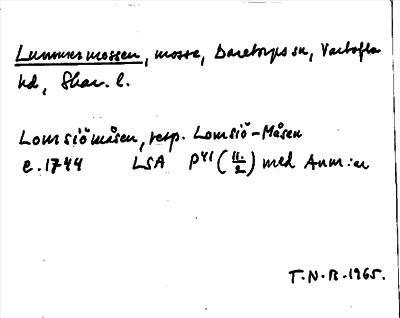 Lummermossen, mosse, Daretorps sn, Vartofta
hd, Skar. l.
Lomsiömåsen, resp. Lomsiö-Måsen
c. 1744 LSA P41 (11:/2) med Anm:er
T.N.R. 1965.